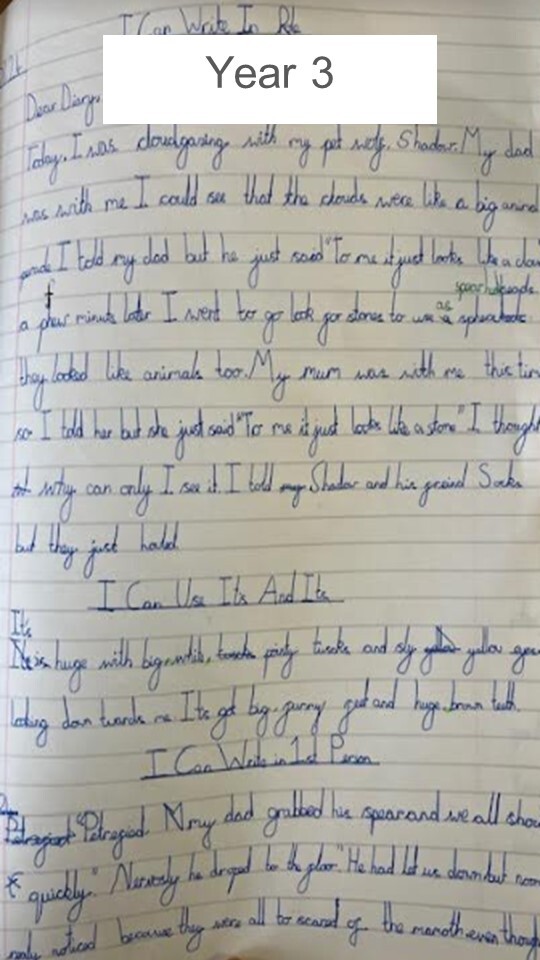 I Can Write In Role
Year 3
Dear Diary,
Today, I was cloudgazing with my pet wolf, Shadow. My dad
was with me I could see that the clouds were like a big
I told my dad but he just said "To me it just looks like a
spearheads
f as
a phew minuts later I went to go look for stones to use
they looked like animals too. My mum was with me this
so I told her but she just said "To me it just looks like a stone" I
why can only I see it. I told my Shadow and his freind Socks
but they just howled.
I Can Use Its And It's
It's
It is huge with big, white, pointy tusks and sly yellow
looking down towards me. It's got big, furry feet and huge, brown teeth.
I Can Write in 1st Person
"Petrafied My dad grabbed his spear and we all
quickly." Nervosly he droped to the floor." He had let us down but
realy noticed because they were all to scared of the mamoth even